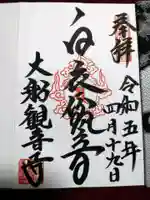 奉拝
令和五年
四月十九日
白衣観音
大船観音寺